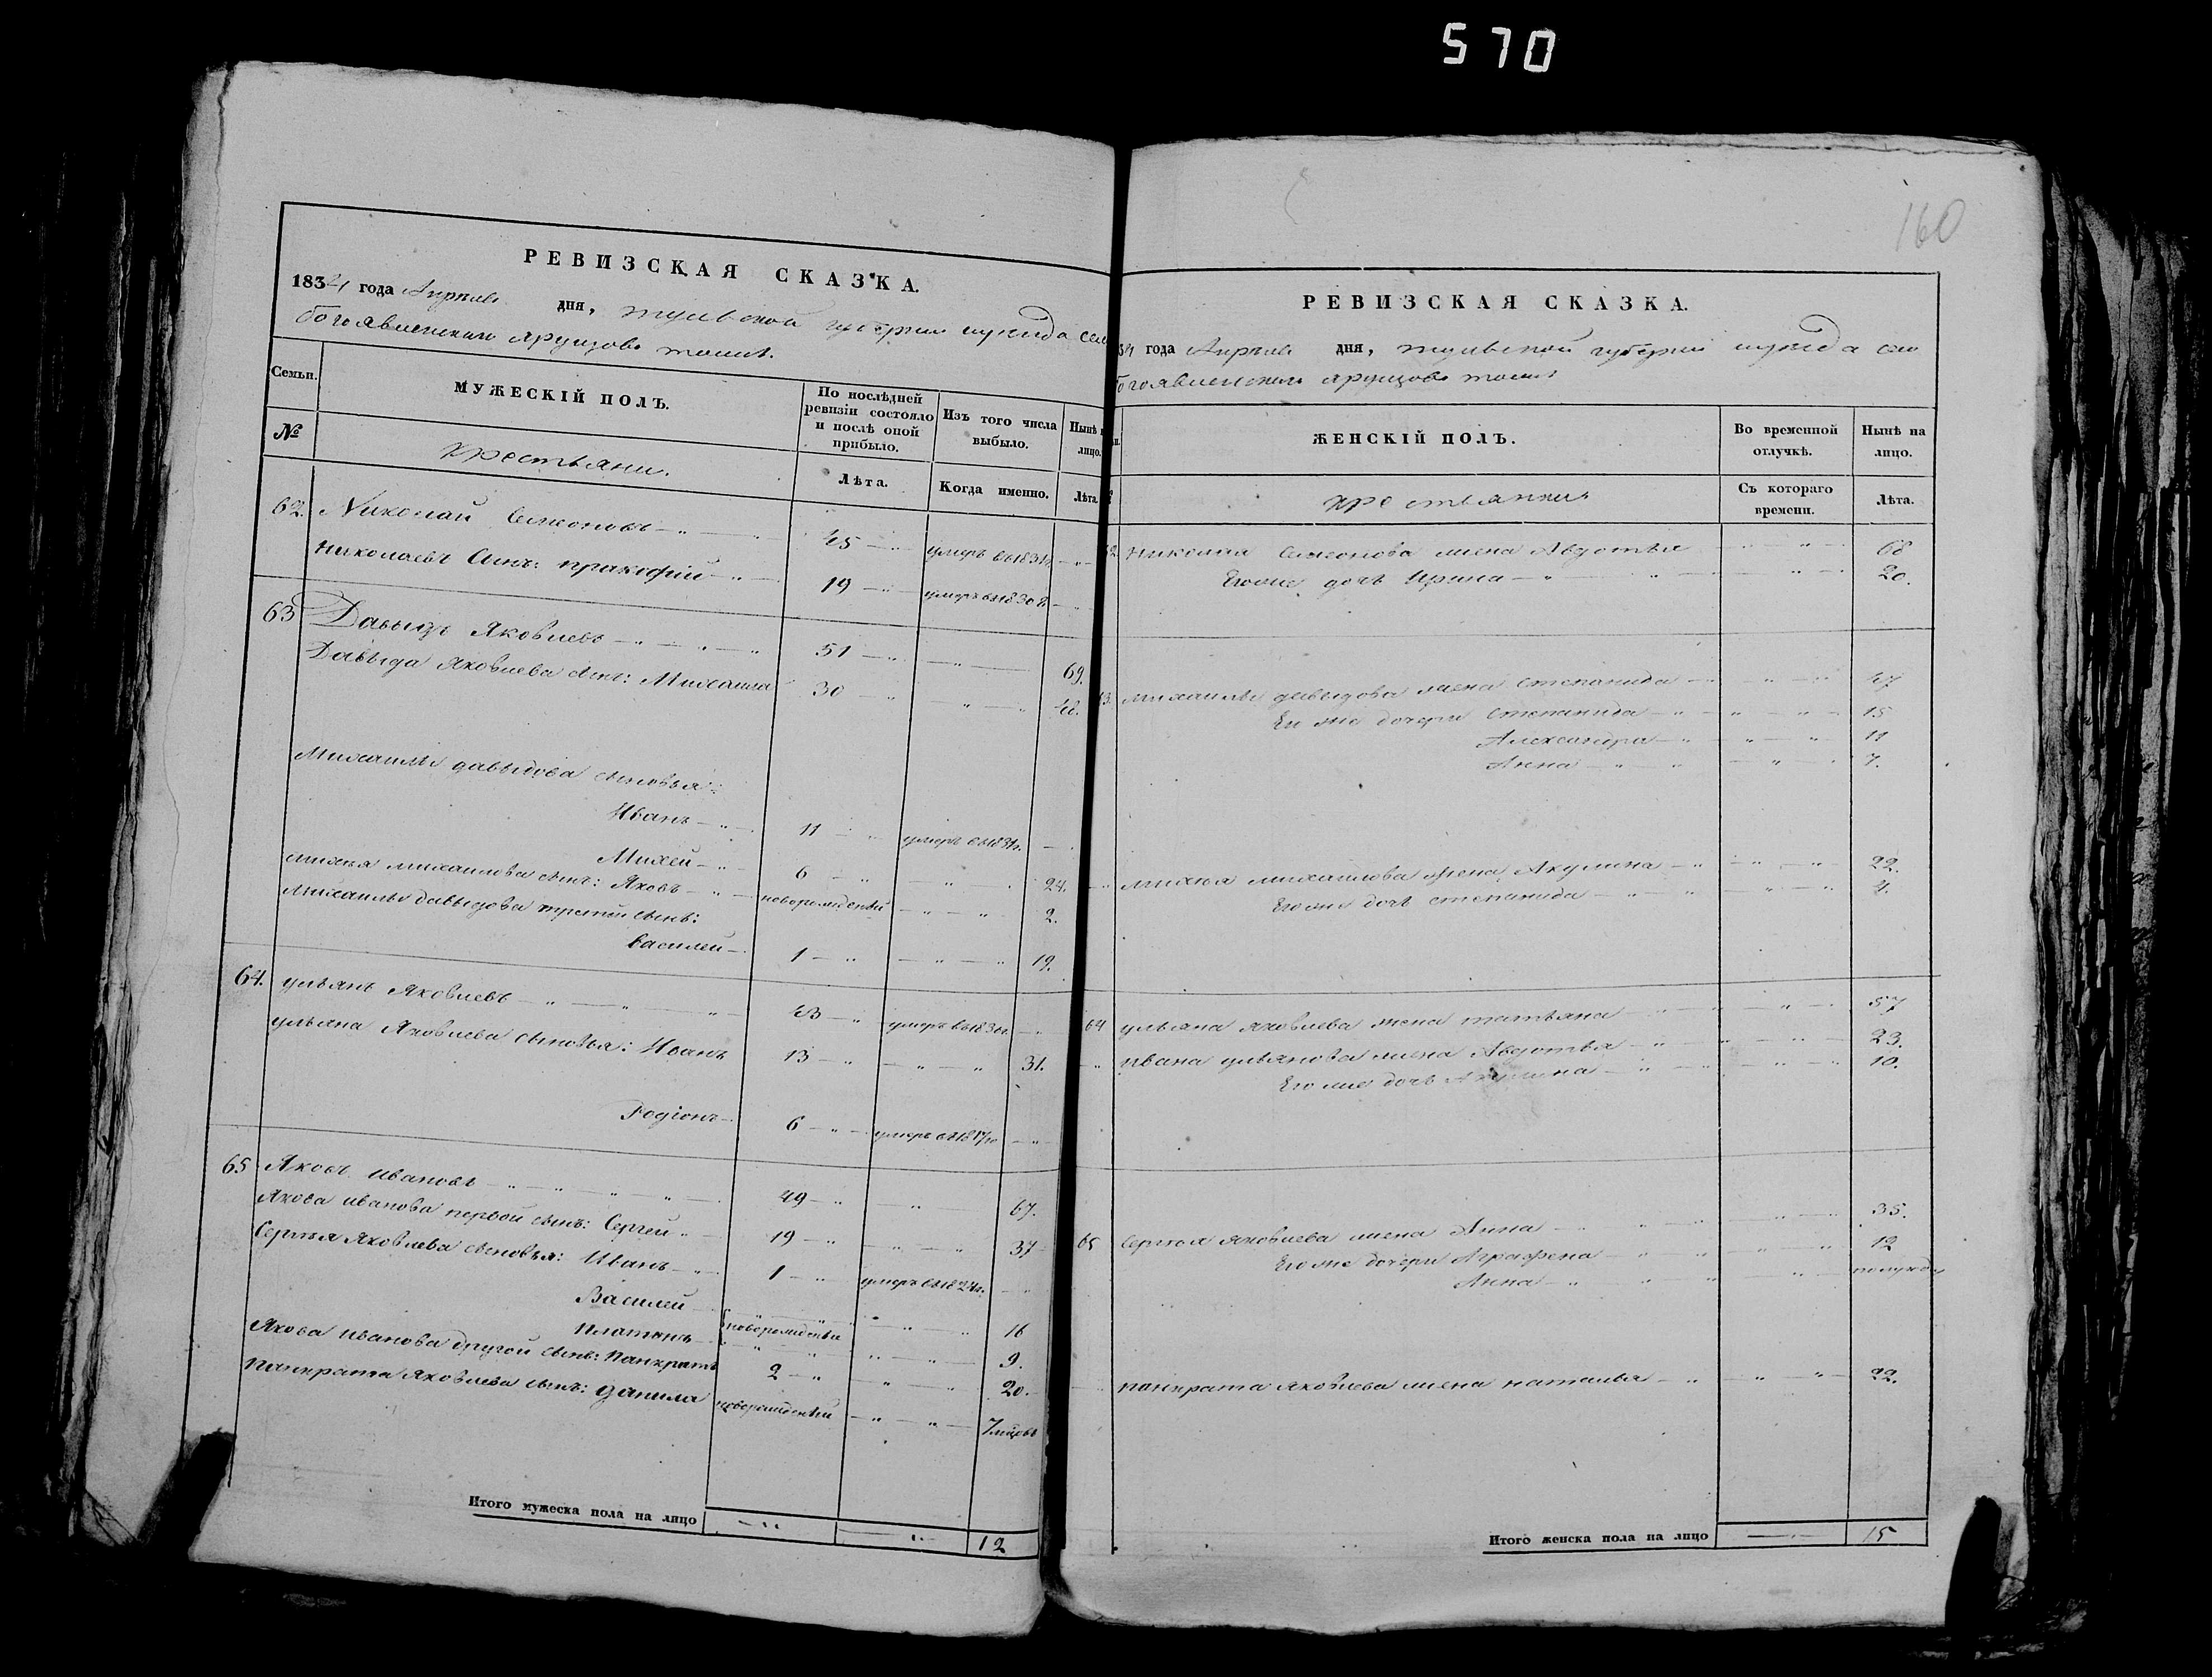 570
160
РЕВИЗСКАЯ СКАЗКА.
1834 года Апреля дня, Тульской губернии уезда села
богоявленскаго
Семьи.
МУЖЕСКІЙ ПОЛЪ.
По послѣдней ревизіи состояло и послѣ оной прибыло.
Изъ того числа выбыло.
Нынѣ на лицо.
№
крестьяни.
Лѣта.
Когда именно.
Лѣта.
62. Николай Семеновъ 45 умеръ въ 1831
Николаевъ Сынъ: пракофій 19 умеръ въ 1830 г.
63 Давыдъ Яковлевъ 51 69.
Давыда Яковлева Сынъ: Михаила 30 48.
Михаилы давыдова сыновья:
Иванъ 11 умеръ въ 1831г.
Михей 6 24.
михея михаилова сынъ: Яковъ новорожденый 2.
Михаилы давыдова третій сынъ:
василей 1 19.
64. ульянъ Яковлевъ 43 умеръ въ
ульяна Яковлева сыновья: Иванъ 13 31.
Родіонъ 6 умеръ въ 18
65 Яковъ ивановъ 49 67.
Якова иванова первой сынъ: Сергей 19 37
Сергея Яковлева сыновья: Иванъ 1 умеръ въ 1824г.
Василей новорожденые 16
платонъ 9.
Якова иванова другой сынъ: панкратъ 2 20.
панкрата Яковлева сынъ: данила новорожденый 7 мцовъ
Итого мужеска пола на лицо 12
РЕВИЗСКАЯ СКАЗКА.
34 года Апреля дня, тульской губерніи уезда села
богоявленскаго
ЖЕНСКІЙ ПОЛЪ.
Во временной отлучкѣ.
Нынѣ на лицо.
крестьянки
Съ котораго времени.
Лѣта.
62. николая семенова жена Авдотья 68
Егоже дочь Ирина 20.
63. михаилы давыдова жена степанида 47
Ея же дочери степанида 15
Александра 11
Анна 7.
михея михаилова жена Акулина 22.
Егоже дочь степанида 4.
64 ульяна яковлева жена татьяна 57
ивана ульянова жена Авдотья 23.
Его же дочь Акулина 10.
65 Сергея яковлева жена Анна 35.
Его же дочери Аграфена 12
Анна полугоду
панкрата яковлева жена наталья 22.
Итого женска пола на лицо 15